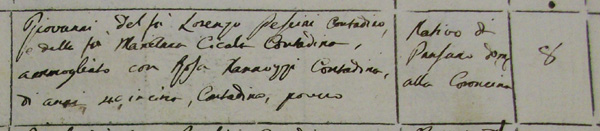 Giovanni del fu Lorenzo Pescini Contadino,
e della fu Cicala Contadina,
ammogliato con Rosa Nannuzzi Contadina,
di anni Contadino, povero
Nativo di
Panzano
alla Coroncina
8